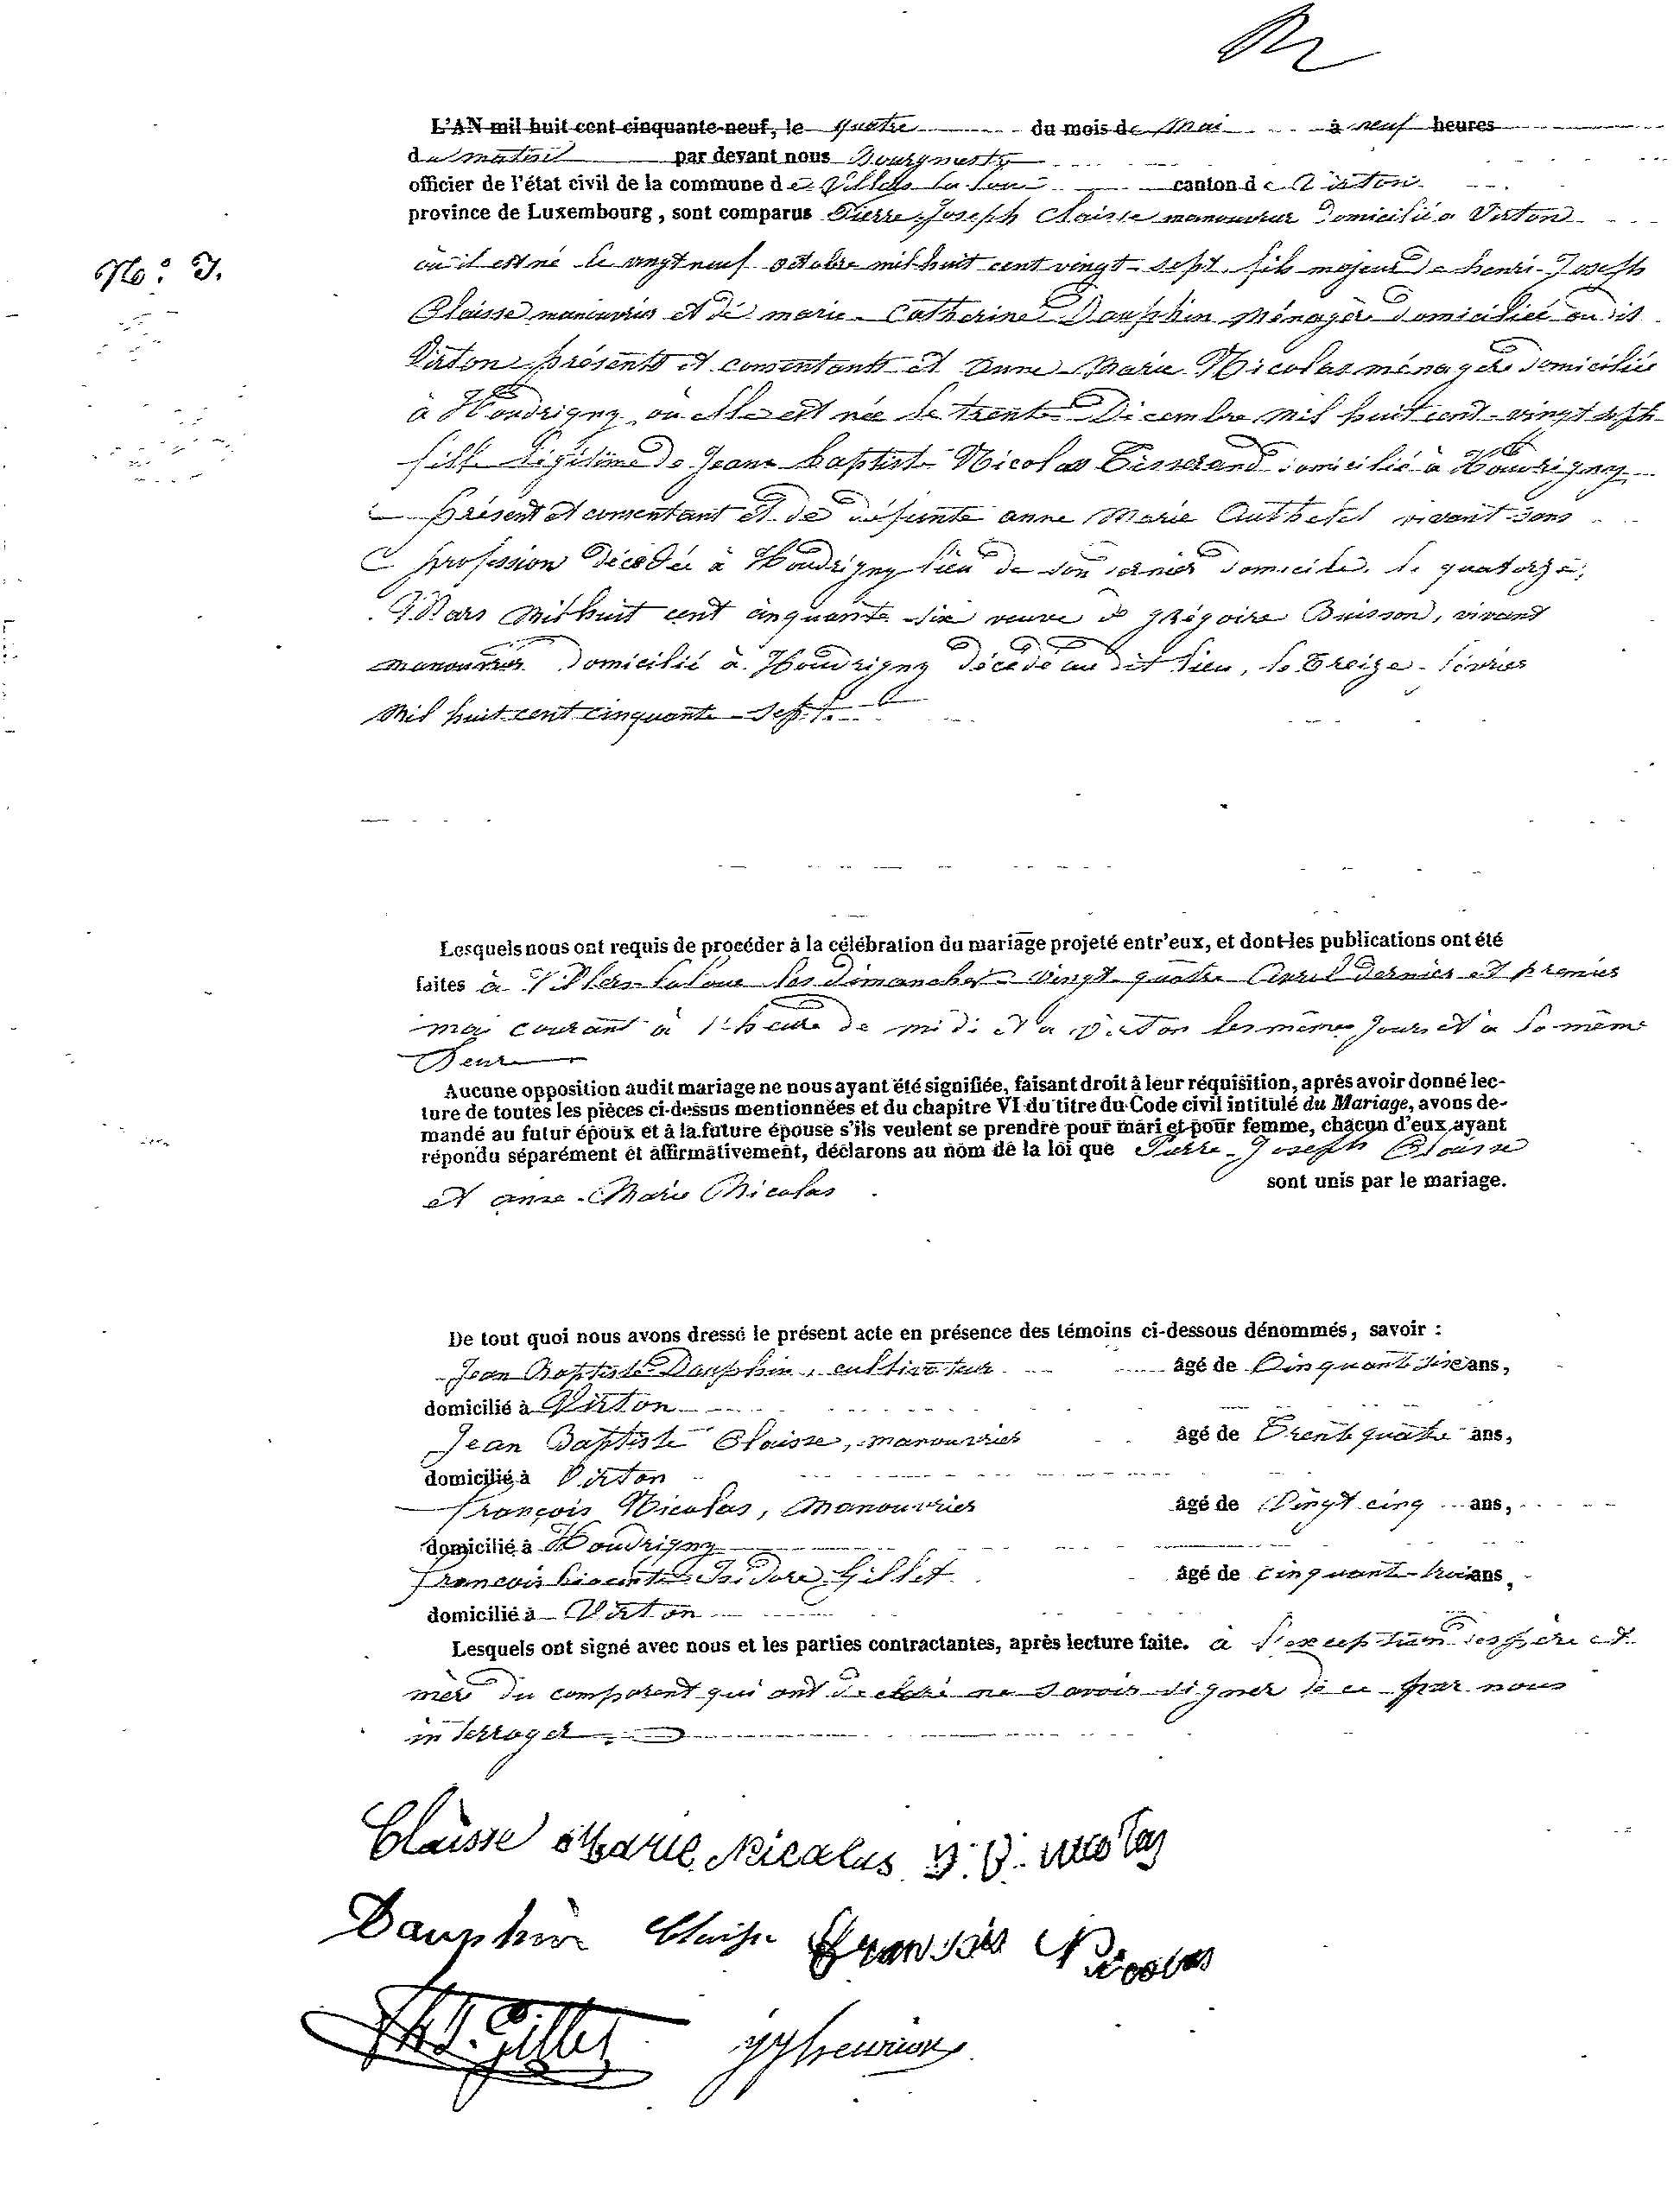 L'AN mil huit cent cinquante-neuf, le quatre du mois de Mai à neuf heures
du matin par devant nous Bourgmestre
officier de l'état civil de la commune de Villers la loue canton de Virton
province de Luxembourg, sont comparus Pierre-Joseph Claisse manouvrier domicilié à Virton
N°: 7.
où il est né le vingt neuf octobre mil huit cent vingt-sept fils majeur de henri-Joseph
Claisse manouvrier et de marie-Catherine Dauphin Ménagère domiciliée au dit
Virton présents et consentants et Anne Marie Nicolas ménagère domiciliée
à Houdrigny où elle est née le trente Décembre mil huit cent vingt sept
fille légitime de Jean baptiste Nicolas Tisserand domicilié à Houdrigny
présent et consentant et de défunte anne Marie vivant sans
profession décédée à Houdrigny lieu de son dernier domicile le quatorze
Mars Mil huit cent cinquante-six veuve de grégoire Buisson, vivant
manouvrier domicilié à Houdrigny décédé au dit lieu, le Treize février
Mil huit cent cinquante-sept
Lesquels nous ont requis de procéder à la célébration du mariage projeté entr'eux, et dont les publications ont été
faites à Villers-laloue les dimanches vingt-quatre Avril dernier et premier
mai courant à l'heure de midi et à Virton les mêmes jours et à la même
heure
Aucune opposition audit mariage ne nous ayant été signifiée, faisant droit à leur réquisition, après avoir donné lec-
ture de toutes les pièces ci-dessus mentionnées et du chapitre VI du titre du Code civil intitulé du Mariage, avons de-
mandé au futur époux et à la future épouse s'ils veulent se prendre pour mari et pour femme, chacun d'eux ayant
répondu séparément et affirmativement, déclarons au nom de la loi que Pierre-Joseph Claisse
et anne-Marie Nicolas sont unis par le mariage.
De tout quoi nous avons dressé le présent acte en présence des témoins ci-dessous dénommés, savoir :
Jean Baptiste Dauphin, cultivateur âgé de Cinquante six ans,
domicilié à Virton
Jean Baptiste Claisse, manouvrier âgé de Trente quatre ans,
domicilié à Virton
françois Nicolas, Manouvrier âgé de Vingt cinq ans,
domicilié à Houdrigny
francois hiacinte Isidore Gillet âgé de cinquante-trois ans,
domicilié à Virton
Lesquels ont signé avec nous et les parties contractantes, après lecture faite. à l'exception des père et
mère du comparent qui ont déclaré ne savoir signer de ce par nous
interroger
Claisse Marie Nicolas J. B. Nicolas
Dauphin Claisse François Nicolas
Gillet